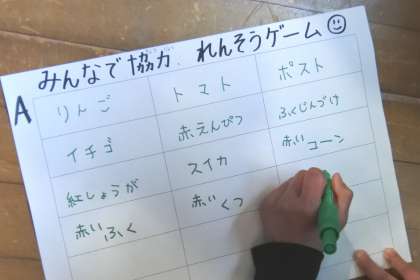 みんなで協力 れんそうゲーム
A
りんご トマト ポスト
イチゴ 赤えんぴつ ふくじんづけ
紅しょうが スイカ 赤いコーン
赤いふく 赤いくつ